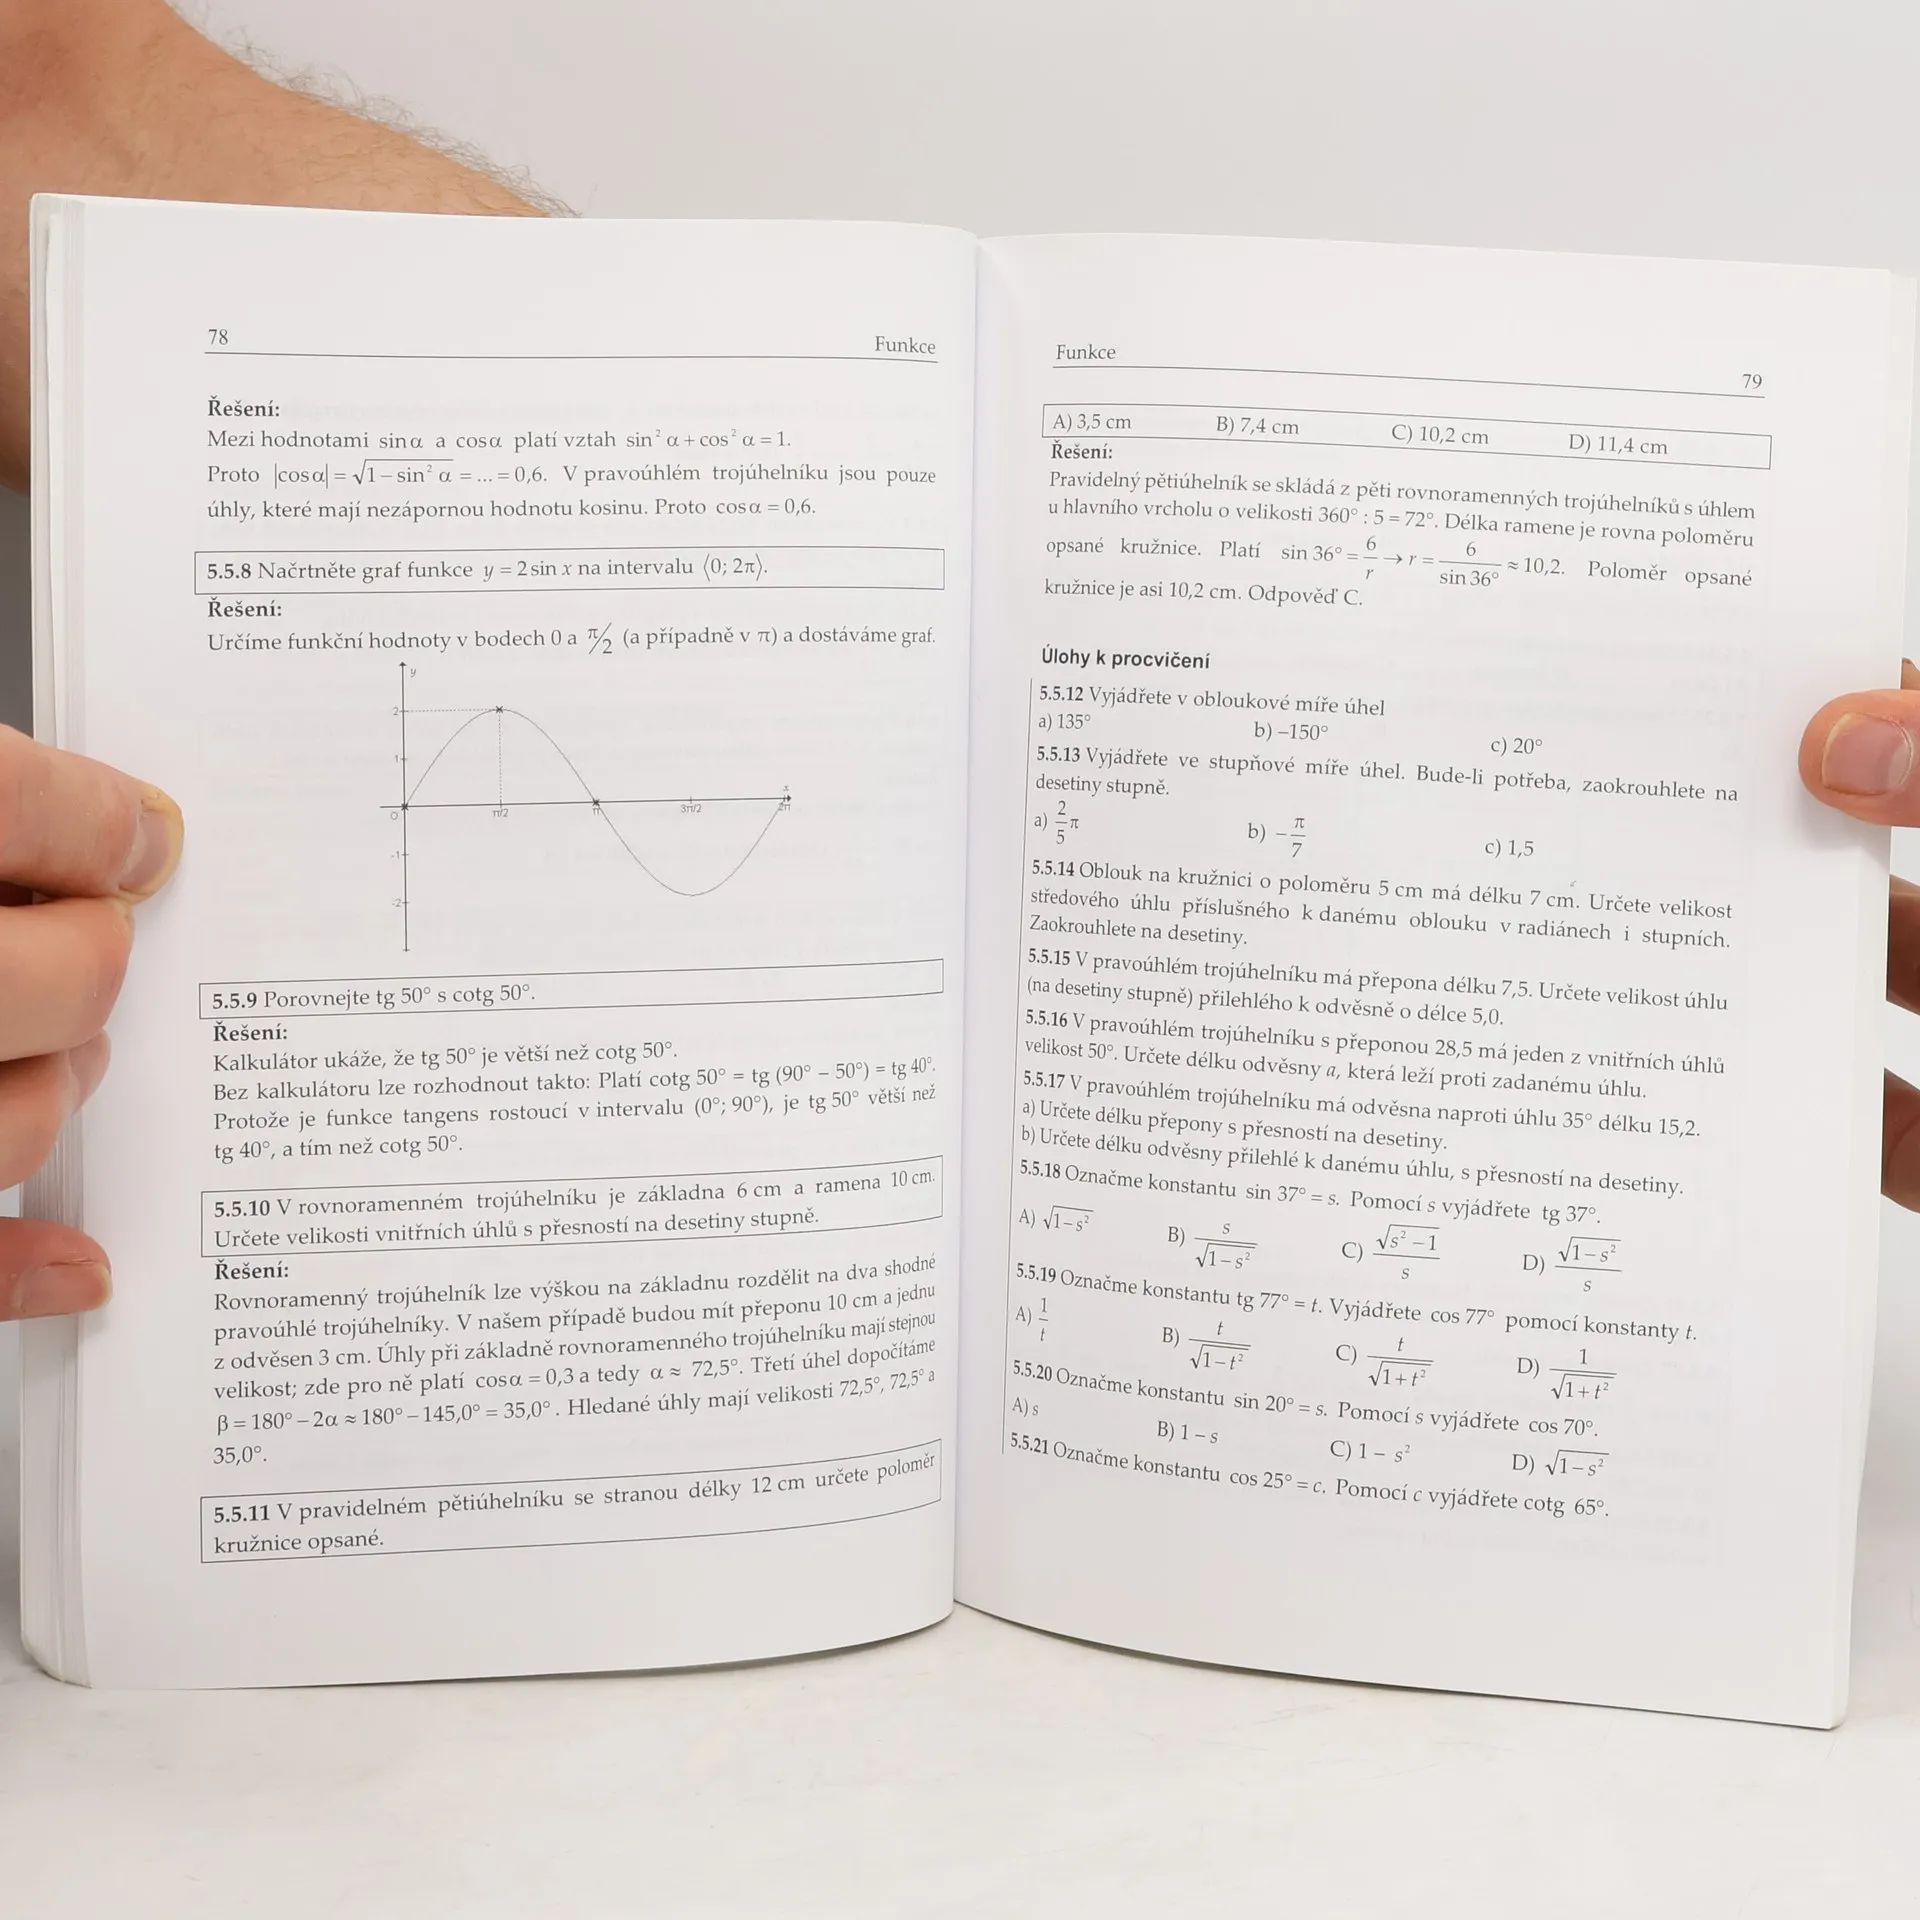 78
Funkce
Řešení:
Mezi hodnotami sin α a cos α platí vztah sin² α + cos² α = 1.
Proto |cos α| = √(1 − sin² α) = ... = 0,6. V pravoúhlém trojúhelníku jsou pouze
úhly, které mají nezápornou hodnotu kosinu. Proto cos α = 0,6.
5.5.8 Načrtněte graf funkce y = 2 sin x na intervalu ⟨0; 2π⟩.
Řešení:
Určíme funkční hodnoty v bodech 0 a π/2 (a případně v π) a dostáváme graf.
y
2
1
x
0 π/2 π 3π/2 2π
-1
-2
5.5.9 Porovnejte tg 50° s cotg 50°.
Řešení:
Kalkulátor ukáže, že tg 50° je větší než cotg 50°.
Bez kalkulátoru lze rozhodnout takto: Platí cotg 50° = tg (90° − 50°) = tg 40°.
Protože je funkce tangens rostoucí v intervalu (0°; 90°), je tg 50° větší než
tg 40°, a tím než cotg 50°.
5.5.10 V rovnoramenném trojúhelníku je základna 6 cm a ramena 10 cm.
Určete velikosti vnitřních úhlů s přesností na desetiny stupně.
Řešení:
Rovnoramenný trojúhelník lze výškou na základnu rozdělit na dva shodné
pravoúhlé trojúhelníky. V našem případě budou mít přeponu 10 cm a jednu
z odvěsen 3 cm. Úhly při základně rovnoramenného trojúhelníku mají stejnou
velikost; zde pro ně platí cos α = 0,3 a tedy α ≈ 72,5°. Třetí úhel dopočítáme
β = 180° − 2α ≈ 180° − 145,0° = 35,0°. Hledané úhly mají velikosti 72,5°, 72,5° a
35,0°.
5.5.11 V pravidelném pětiúhelníku se stranou délky 12 cm určete poloměr
kružnice opsané.
Funkce
79
A) 3,5 cm B) 7,4 cm C) 10,2 cm D) 11,4 cm
Řešení:
Pravidelný pětiúhelník se skládá z pěti rovnoramenných trojúhelníků s úhlem
u hlavního vrcholu o velikosti 360° : 5 = 72°. Délka ramene je rovna poloměru
opsané kružnice. Platí sin 36° = 6/r → r = 6/sin 36° ≈ 10,2. Poloměr opsané
kružnice je asi 10,2 cm. Odpověď C.
Úlohy k procvičení
5.5.12 Vyjádřete v obloukové míře úhel
a) 135° b) −150° c) 20°
5.5.13 Vyjádřete ve stupňové míře úhel. Bude-li potřeba, zaokrouhlete na
desetiny stupně.
a) 2/5 π b) −π/7 c) 1,5
5.5.14 Oblouk na kružnici o poloměru 5 cm má délku 7 cm. Určete velikost
středového úhlu příslušného k danému oblouku v radiánech i stupních.
Zaokrouhlete na desetiny.
5.5.15 V pravoúhlém trojúhelníku má přepona délku 7,5. Určete velikost úhlu
(na desetiny stupně) přilehlého k odvěsně o délce 5,0.
5.5.16 V pravoúhlém trojúhelníku s přeponou 28,5 má jeden z vnitřních úhlů
velikost 50°. Určete délku odvěsny a, která leží proti zadanému úhlu.
5.5.17 V pravoúhlém trojúhelníku má odvěsna naproti úhlu 35° délku 15,2.
a) Určete délku přepony s přesností na desetiny.
b) Určete délku odvěsny přilehlé k danému úhlu, s přesností na desetiny.
5.5.18 Označme konstantu sin 37° = s. Pomocí s vyjádřete tg 37°.
A) √(1−s²) B) s/√(1−s²) C) √(s²−1)/s D) √(1−s²)/s
5.5.19 Označme konstantu tg 77° = t. Vyjádřete cos 77° pomocí konstanty t.
A) 1/t B) t/√(1−t²) C) t/√(1+t²) D) 1/√(1+t²)
5.5.20 Označme konstantu sin 20° = s. Pomocí s vyjádřete cos 70°.
A) s B) 1 − s C) 1 − s² D) √(1−s²)
5.5.21 Označme konstantu cos 25° = c. Pomocí c vyjádřete cotg 65°.